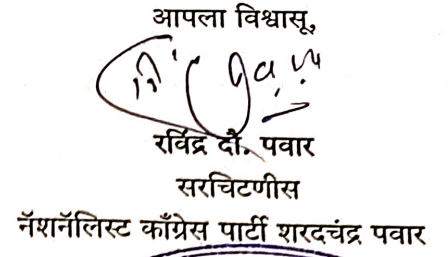 आपला विश्वासू,
रविंद्र दौ. पवार
सरचिटणीस
नॅशनॅलिस्ट काँग्रेस पार्टी शरदचंद्र पवार